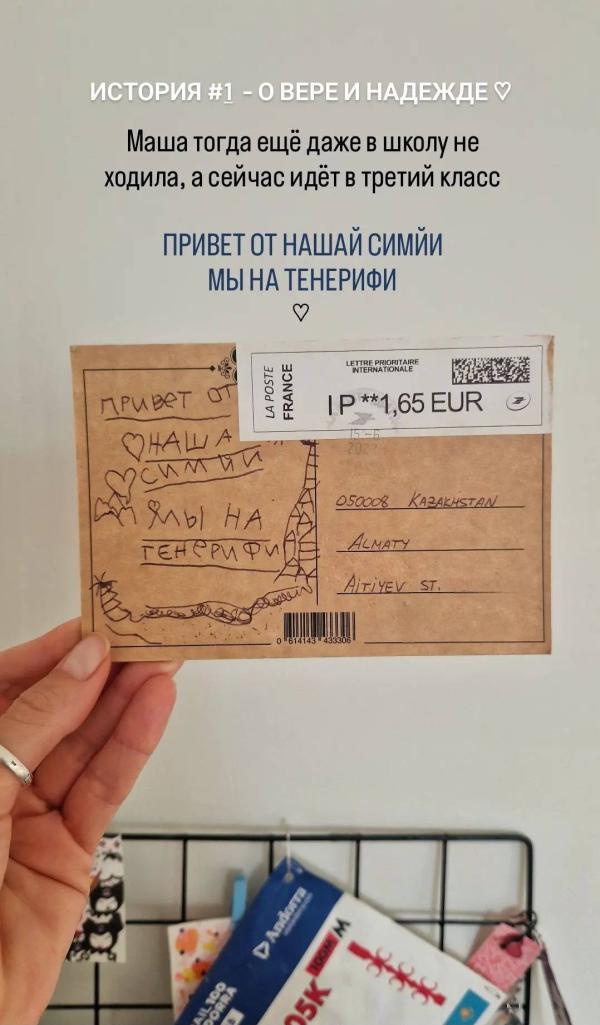 ИСТОРИЯ #1 - О ВЕРЕ И НАДЕЖДЕ ♡
Маша тогда ещё даже в школу не
ходила, а сейчас идёт в третий класс
ПРИВЕТ ОТ НАШАЙ СИМЙИ
МЫ НА ТЕНЕРИФИ
♡
LA POSTE
FRANCE
LETTRE PRIORITAIRE
INTERNATIONALE
IP **1,65 EUR
ПРИВЕТ ОТ
НАША
СИМЙИ
МЫ НА
ТЕНЕРИФИ
050008 KAZAKHSTAN
ALMATY
AITIYEV ST.
0 614143 433306
Andorra
100M M
05K